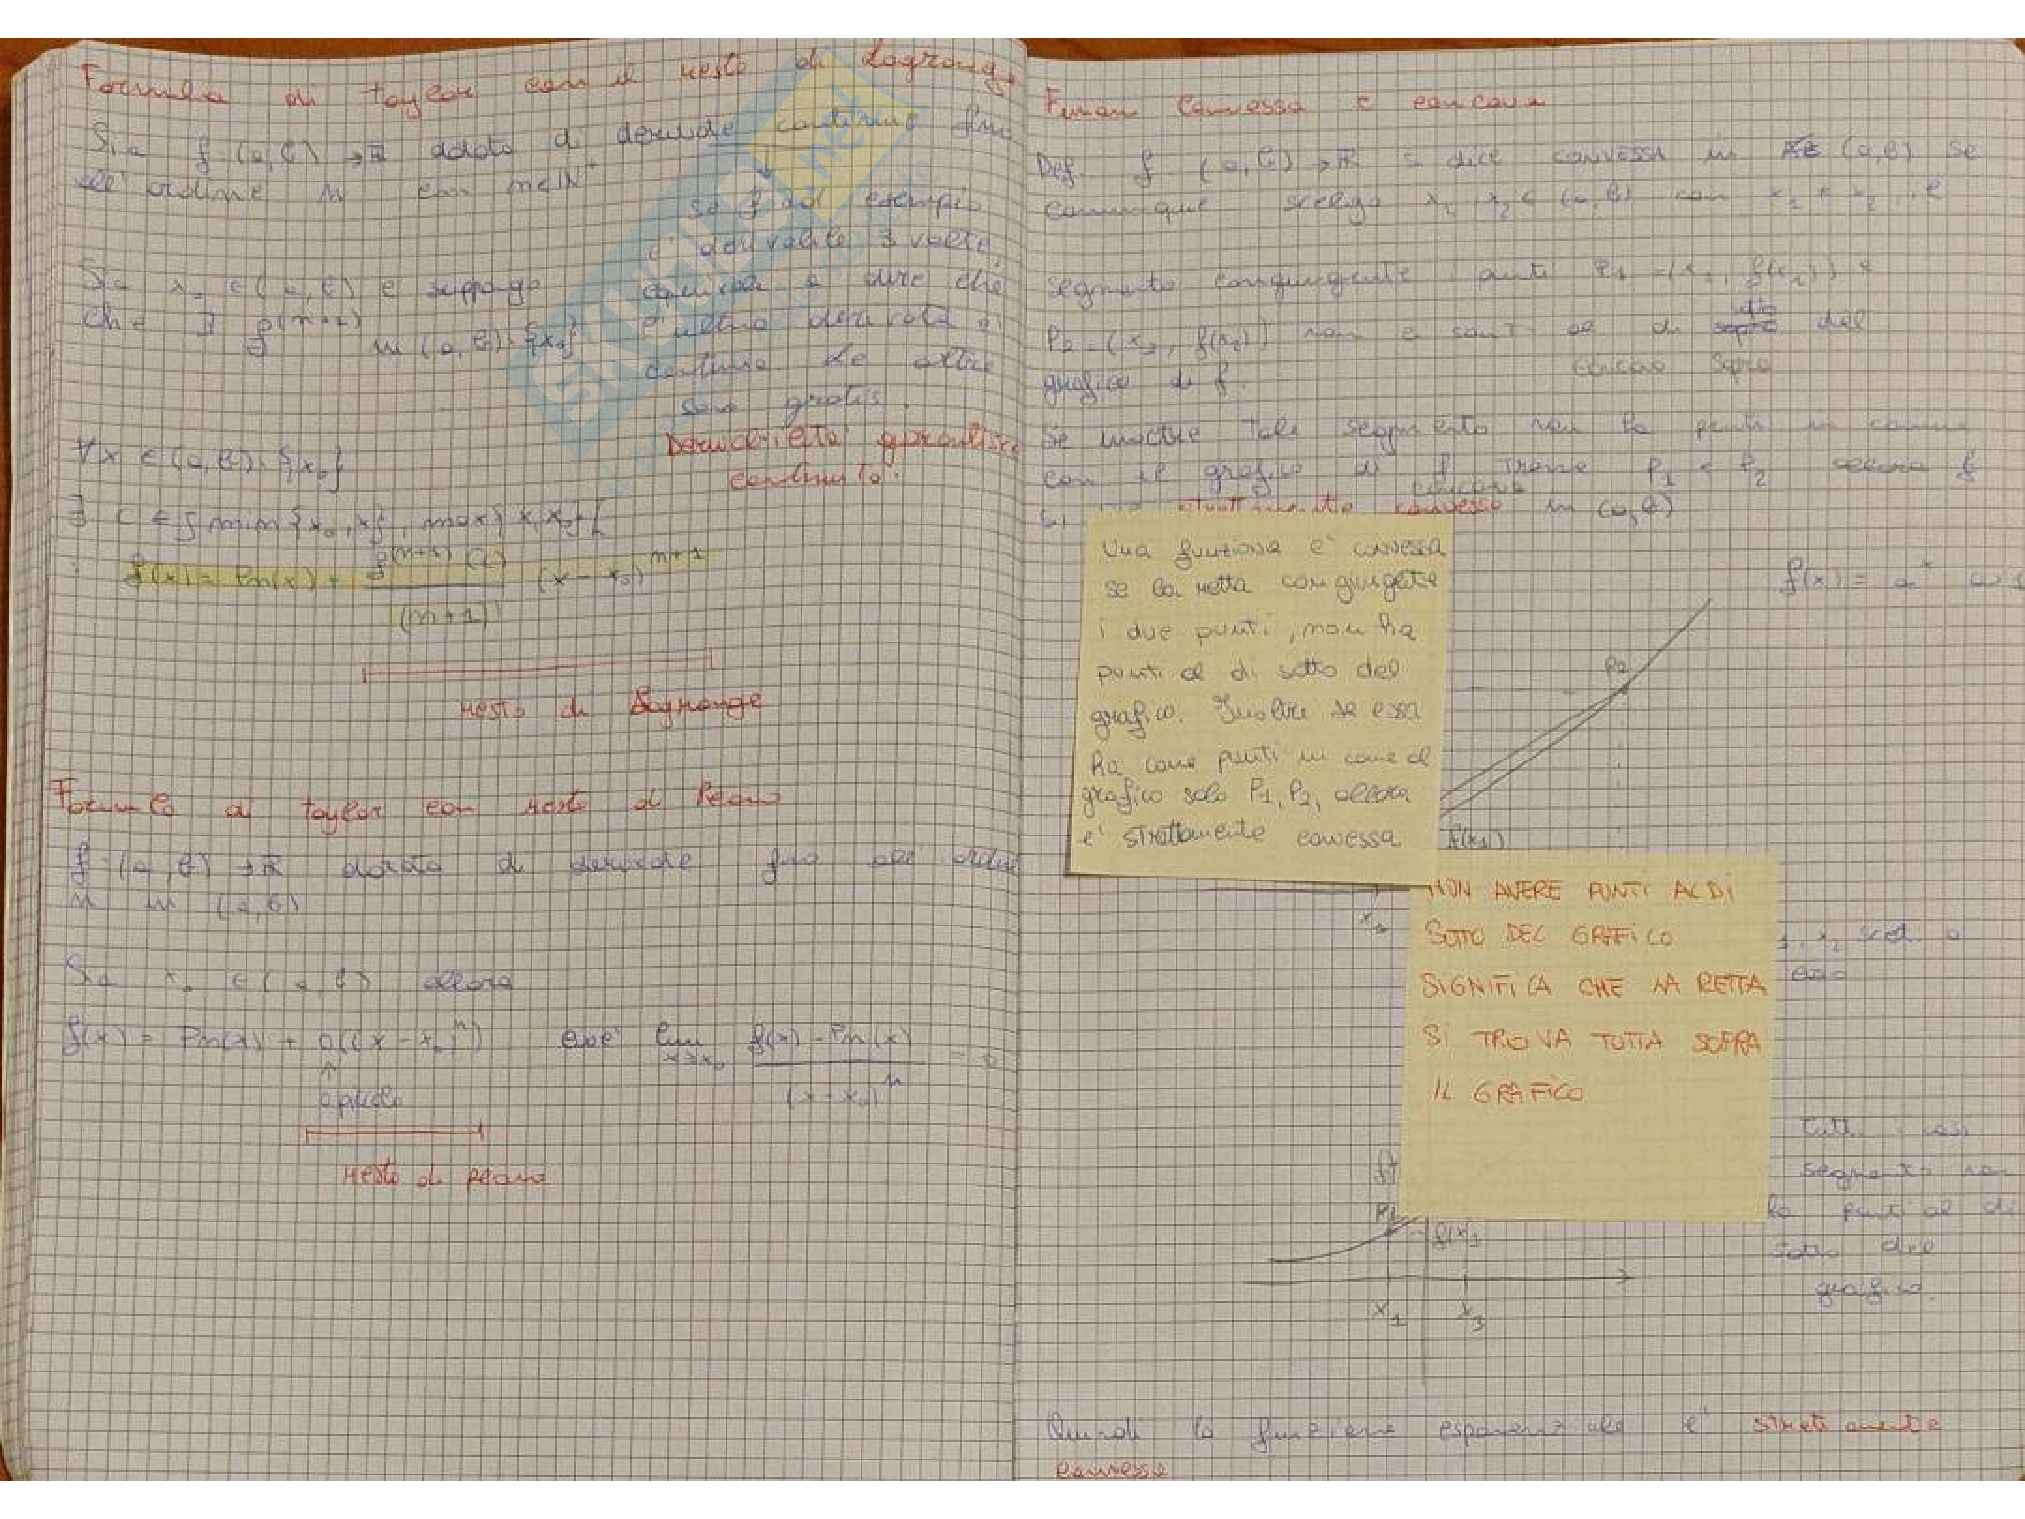 Formula di taylor con il resto di Lagrange
Sia f (a,b) → R dotata di derivate continue fino
all'ordine n con n∈N+
se f ad esempio
è derivabile 3 volte,
Sia x₀ ∈ (a,b) e suppongo
equivale a dire che
che ∃ f^(n+1) in (a,b)\{x₀}
l'ultima derivata è
continua le altre
sono gratis.
∀x ∈ (a,b)\{x₀}
Derivabilità
continuità.
∃ c ∈ ] min{x₀,x}, max{x,x₀} [
: f(x) = Pn(x) + f^(n+1)(c) / (n+1)! (x-x₀)^n+1
resto di Lagrange
Formula di taylor con resto di Peano
f (a,b) → R dotata di derivate fino all'ordine
n in (a,b)
Sia x₀ ∈ (a,b) allora
f(x) = Pn(x) + o((x-x₀)^n) cioè lim x→x₀ f(x) - Pn(x) / (x-x₀)^n = 0
o piccolo
resto di Peano
Funzioni Convessa e concava
Def. f (a,b) → R si dice convessa in (a,b) se
comunque scelgo x₁, x₂ ∈ (a,b) con x₁ ≠ x₂, il
segmento congiungente i punti P₁ = (x₁, f(x₁)) e
P₂ = (x₂, f(x₂)) non ha punti al di sotto del
concava sopra
grafico di f.
Se inoltre tale segmento non ha punti in comune
con il grafico di f tranne P₁ e P₂ allora f
concava
strettamente convessa in (a,b)
Una funzione e' convessa
se la retta congiungete
i due punti, non ha
punti al di sotto del
grafico. Inoltre se essa
ha come punti in come al
grafico solo P₁, P₂, allora
e' strettamente convessa
f(x) = a^x
P₂
f(x₁)
NON AVERE PUNTI AL DI
SOTTO DEL GRAFICO
SIGNIFICA CHE LA RETTA
SI TROVA TUTTA SOPRA
IL GRAFICO
x₁
x₂
segmento non
ha punti al di
sotto del
grafico.
P₁
f(x₁)
x₁ x₃
Quindi la funzione esponenziale e' strettamente
convessa